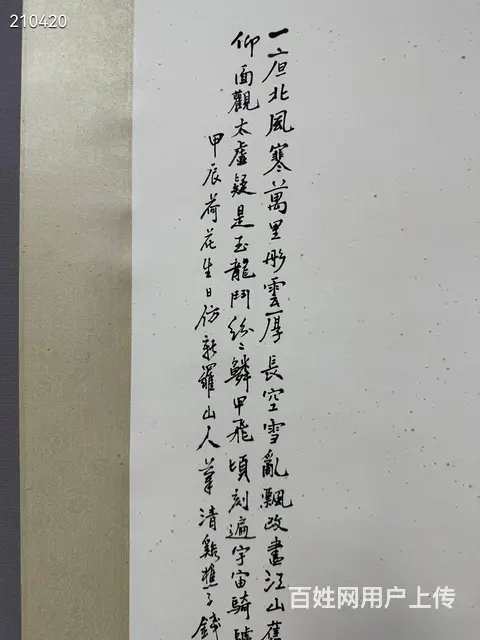 210420
一亱北風寒萬里彤雲厚長空雪亂飄改盡江山舊
仰面觀太虛疑是玉龍鬥紛〻鱗甲飛頃刻遍宇宙騎驢
甲辰荷花生日仿新羅山人筆清谿樵子錢
百姓网用户上传